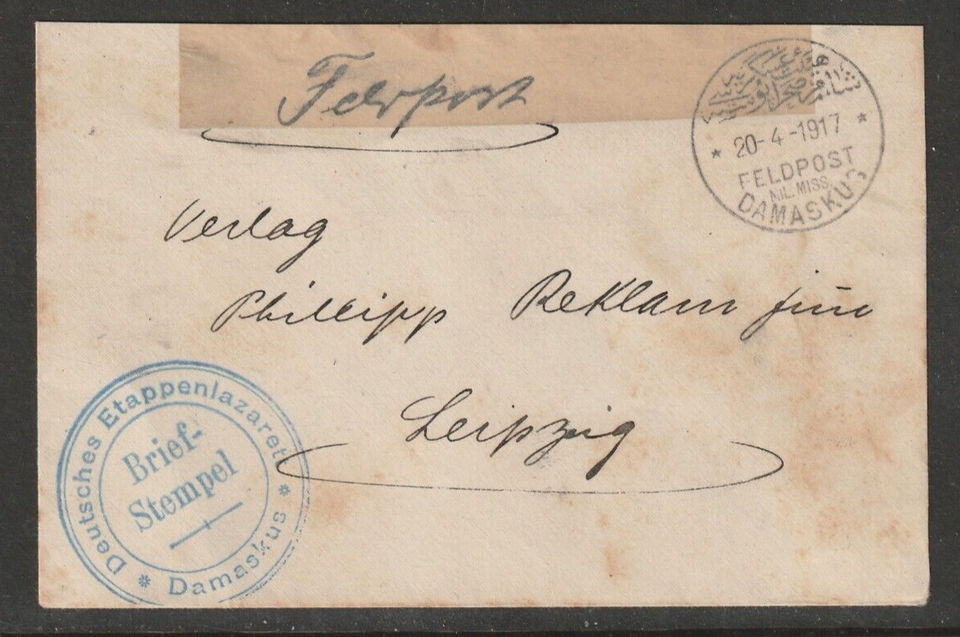 Feldpost
20-4-1917
FELDPOST
MIL. MISS.
DAMASKUS
Verlag
Phillipp Reklam jun
Leipzig
Deutsches Etappenlazarett
Brief-
Stempel
Damaskus